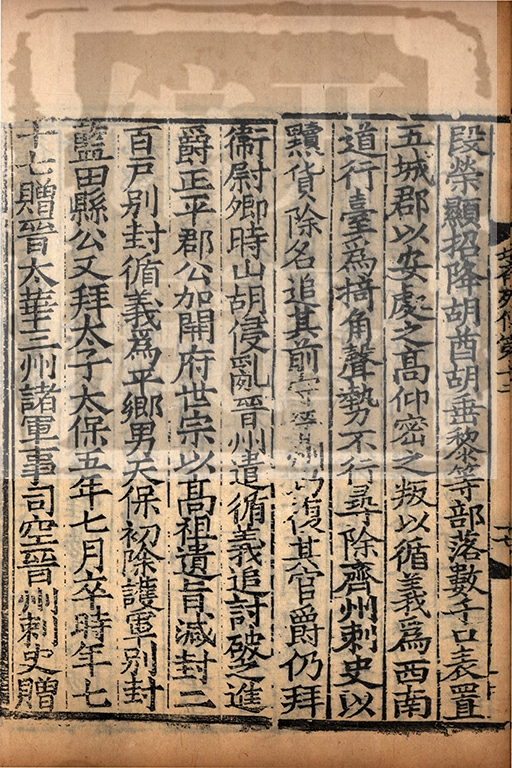 段榮顯招降胡酋胡垂黎等部落數千口表置
五城郡以安處之高仰密之叛以循義爲西南
道行臺爲掎角聲勢不行尋除齊州刺史以
黷貨除名追其前守晉州功復其官爵仍拜
衞尉卿時山胡侵亂晉州遣循義追討破之進
爵正平郡公加開府世宗以高祖遺旨減封二
百戸別封循義爲平鄉男天保初除護軍別封
藍田縣公又拜太子太保五年七月卒時年七
十七贈晉太華三州諸軍事司空晉州刺史贈